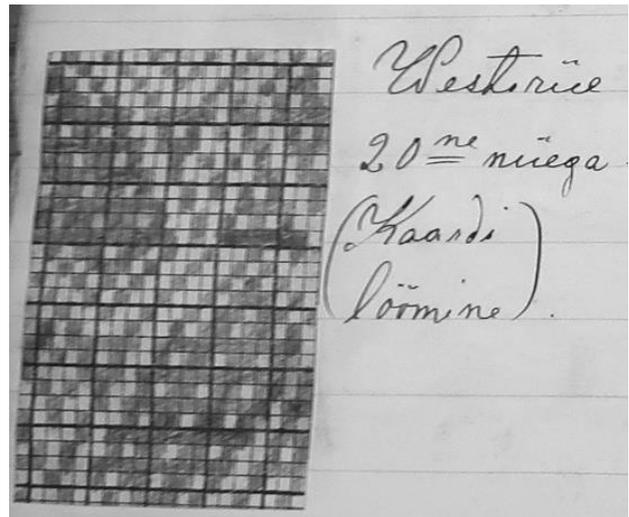 Westiriie
20 ne niiega
(Kaardi
löömine).